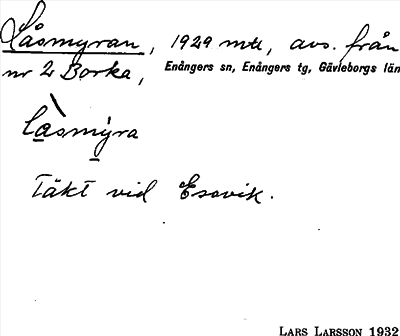 Låsmyran, 1929 mtl, avs. från
nr 2 Borka, Enångers sn, Enångers tg, Gävleborgs län
làsmýra
Täkt vid Esovik.
LARS LARSSON 1932